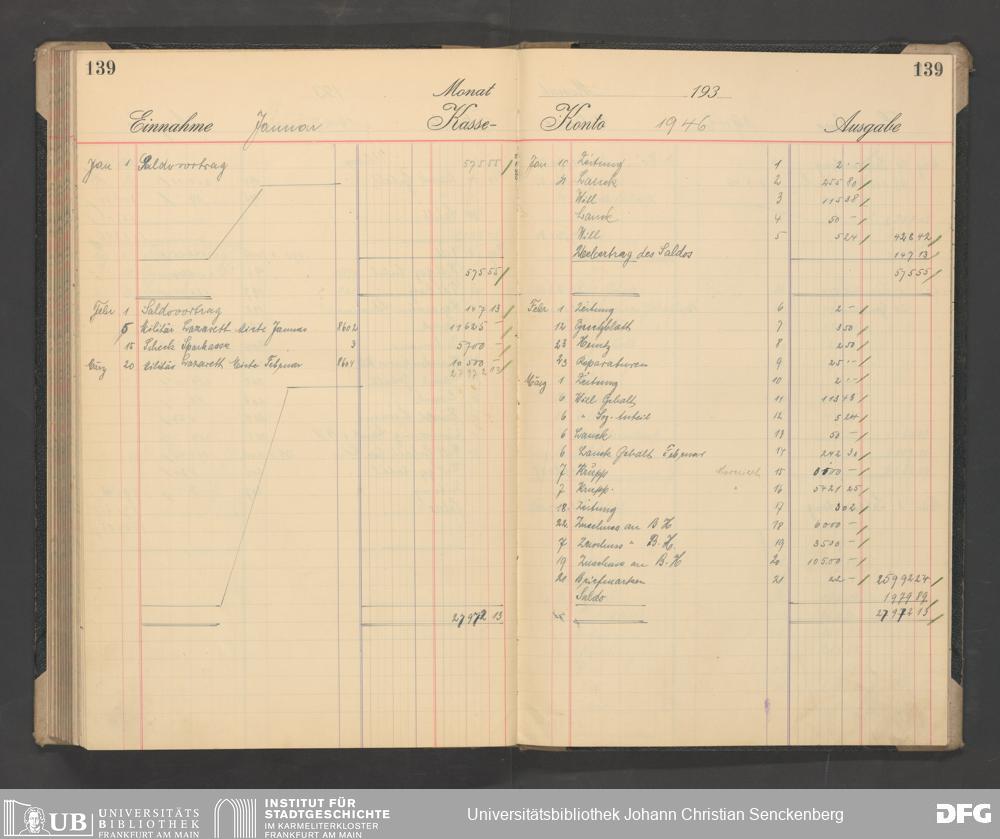 139
Monat
Einnahme Januar Kasse-
Jan 1 Saldovortrag 575 55
575 55
Febr 1 Saldovortrag 147 13
5 Militär Lazarett Miete Januar 8602 11625 -
15 Scheck Sparkasse 3 5700 -
März 20 Militär Lazarett Miete Februar 8604 10500 -
27972 13
27972 13
139
193
Konto 1946 Ausgabe
Jan 10 Zeitung 1 2 -
255 80
Will 3 115 38
4 50 -
Will 5 5 24 428 42
Uebertrag des Saldos 147 13
575 55
Febr 1 Zeitung 6 2 -
12 7 3 50
23 8 2 50
23 Reparaturen 9 25 -
März 1 Zeitung 10 2 -
6 Will Gehalt 11 113 43
6 " Soz. Anteil 12 5 24
6 13 50 -
6 Gehalt Februar 14 242 30
7 Krupp 15 -
7 Krupp 16 5421 25
18 Zeitung 17 3 02
22 Zuschuss an B.H. 18 6000 -
7 Zuschuss " B.H. 19 3500 -
19 Zuschuss an B.H. 20 10500 -
20 Briefmarken 21 22 - 25992 24
Saldo 1979 89
27972 13
UB UNIVERSITÄTS
BIBLIOTHEK
FRANKFURT AM MAIN
INSTITUT FÜR
STADTGESCHICHTE
IM KARMELITERKLOSTER
FRANKFURT AM MAIN
Universitätsbibliothek Johann Christian Senckenberg
DFG